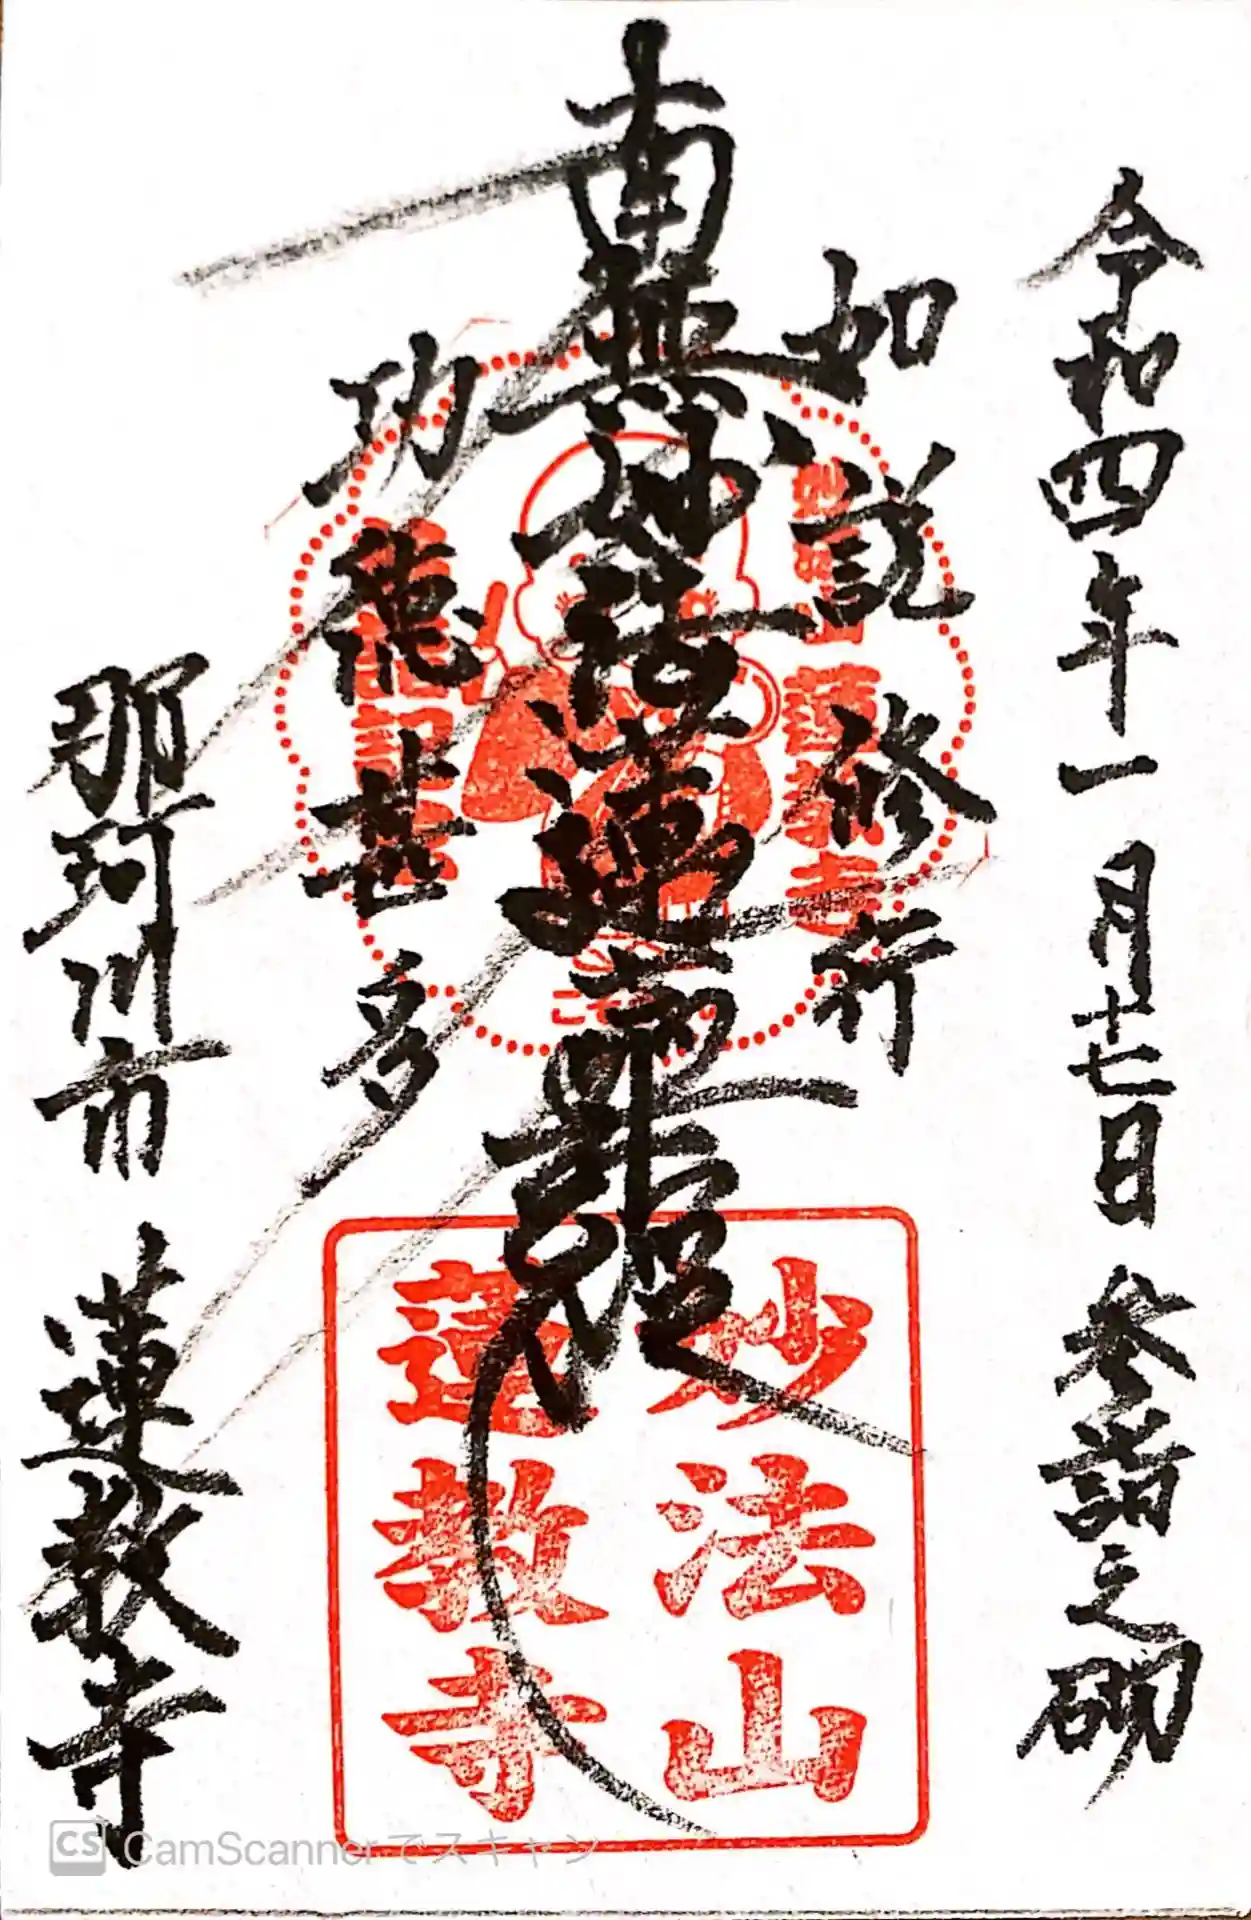 令和四年一月十七日 参詣之砌
如説修行
南無妙法蓮華経
功徳甚多
那珂川市 蓮教寺
妙法山
蓮教寺
CS CamScannerでスキャン